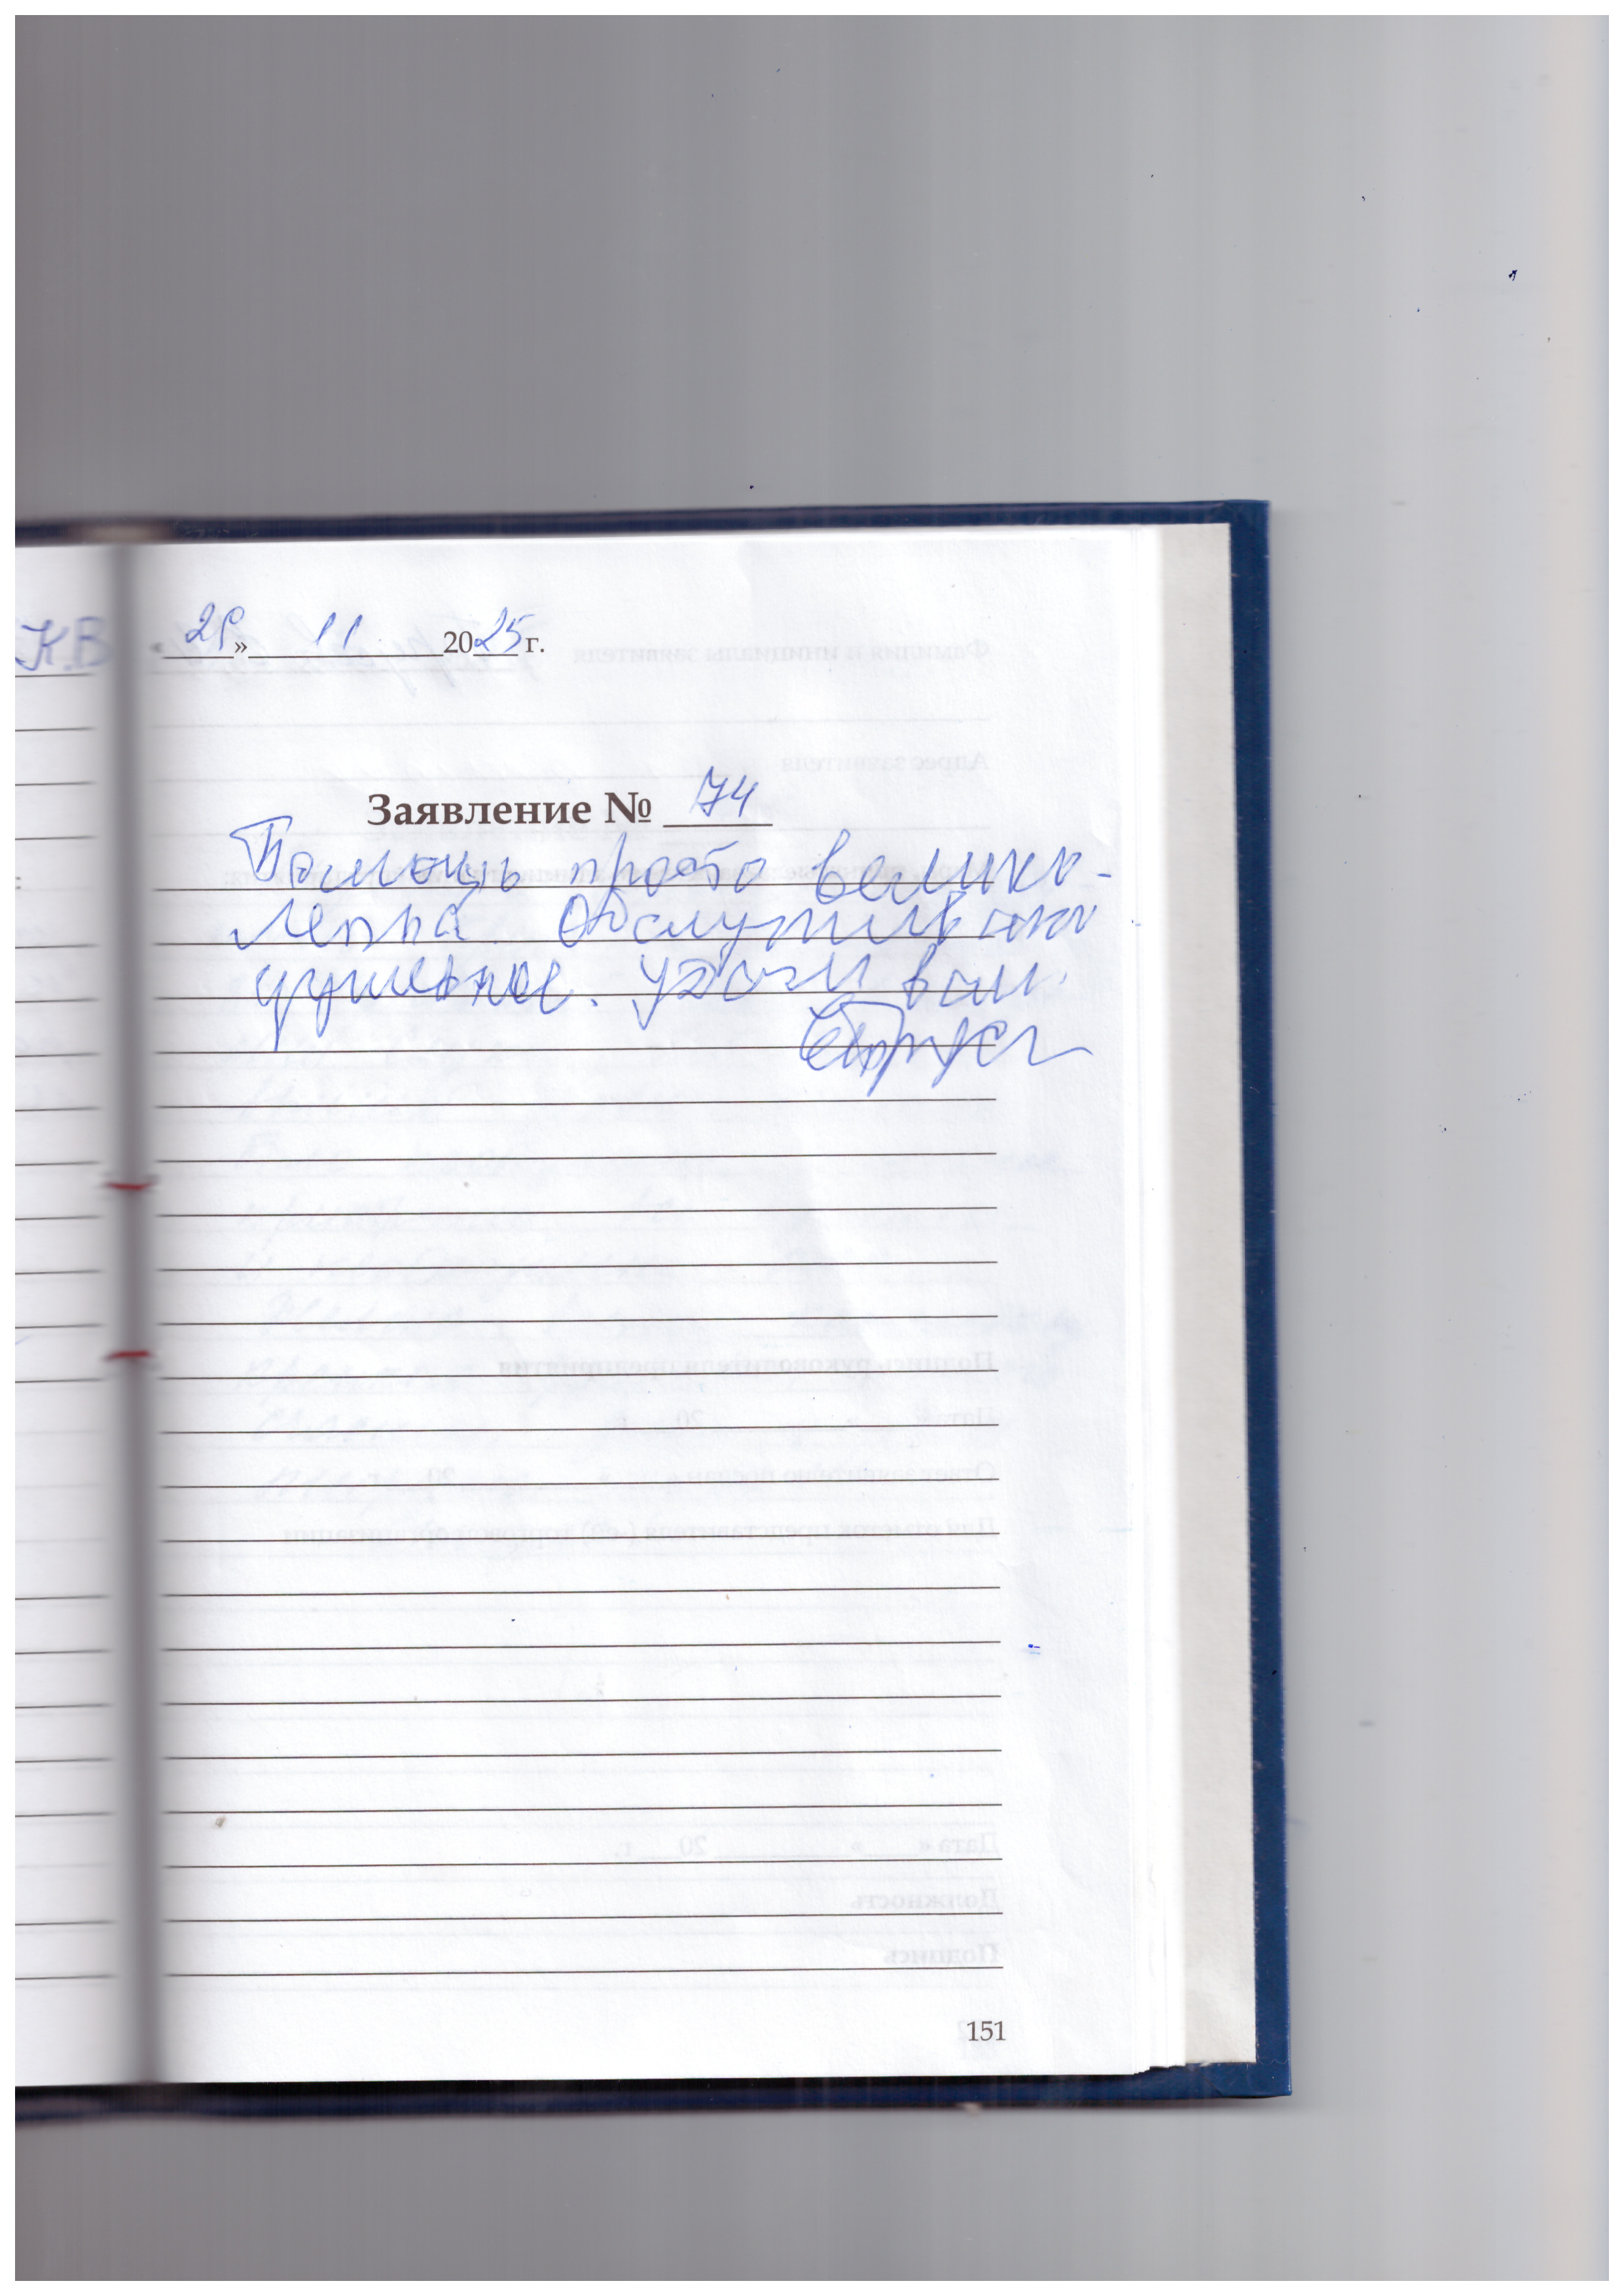 К.В
«29» 11 2025 г.
Заявление № 74
Помощь просто велико-
лепна Обслуживание
душевное. Удачи вам.
151